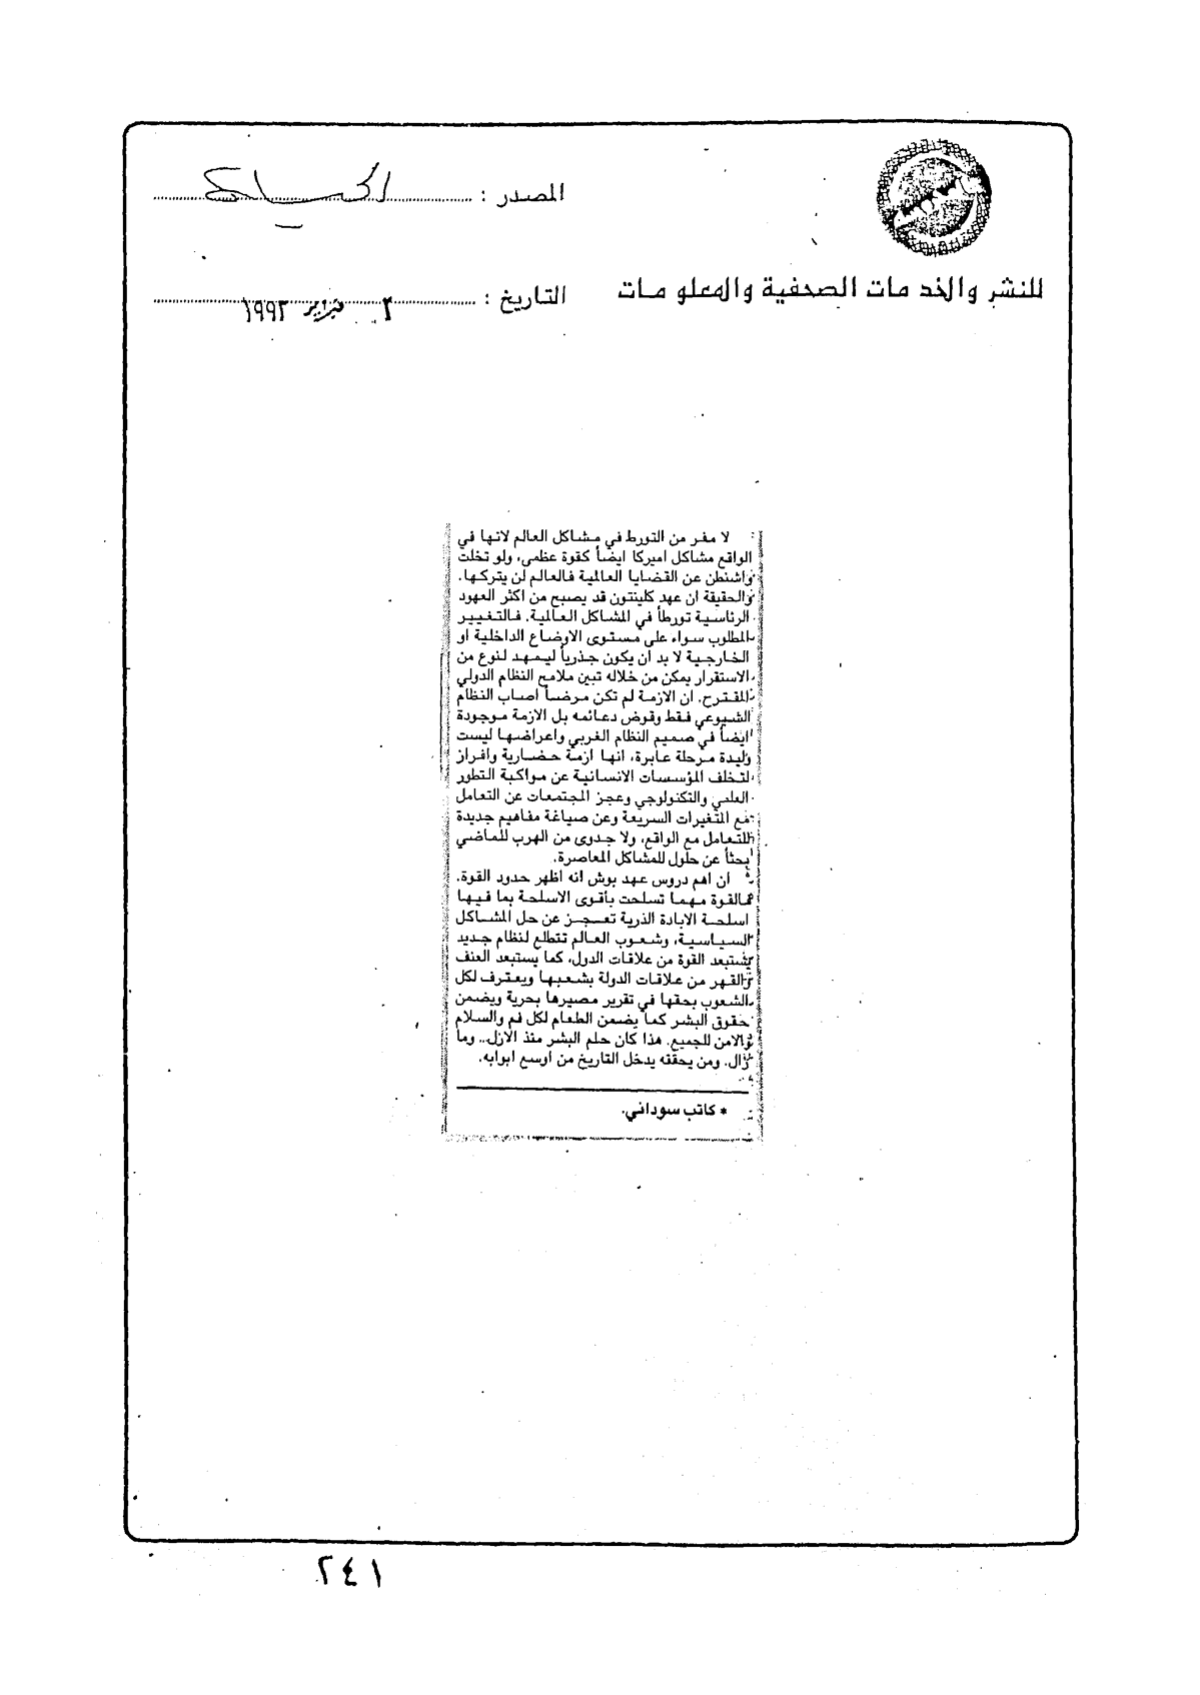 المصدر : الحياة
للنشر والخدمات الصحفية والمعلومات
التاريخ : ٢ فبراير ١٩٩٣
لا مفر من التورط في مشاكل العالم لانها في
الواقع مشاكل اميركا ايضاً كقوة عظمى، ولو تخلت
واشنطن عن القضايا العالمية فالعالم لن يتركها.
والحقيقة ان عهد كلينتون قد يصبح من اكثر العهود
الرئاسية تورطاً في المشاكل العالمية. فالتغيير
المطلوب سواء على مستوى الاوضاع الداخلية او
الخارجية لا بد ان يكون جذرياً ليمهد لنوع من
الاستقرار يمكن من خلاله تبين ملامح النظام الدولي
المقترح. ان الازمة لم تكن مرضاً اصاب النظام
الشيوعي فقط وقوض دعائمه بل الازمة موجودة
ايضاً في صميم النظام الغربي واعراضها ليست
وليدة مرحلة عابرة، انها ازمة حضارية وافراز
لتخلف المؤسسات الانسانية عن مواكبة التطور
العلمي والتكنولوجي وعجز المجتمعات عن التعامل
مع المتغيرات السريعة وعن صياغة مفاهيم جديدة
للتعامل مع الواقع، ولا جدوى من الهرب للماضي
بحثاً عن حلول للمشاكل المعاصرة.
ان اهم دروس عهد بوش انه اظهر حدود القوة.
فالقوة مهما تسلحت بأقوى الاسلحة بما فيها
اسلحة الابادة الذرية تعجز عن حل المشاكل
السياسية، وشعوب العالم تتطلع لنظام جديد
يستبعد القوة من علاقات الدول، كما يستبعد العنف
والقهر من علاقات الدولة بشعبها ويعترف لكل
الشعوب بحقها في تقرير مصيرها بحرية ويضمن
حقوق البشر كما يضمن الطعام لكل فم والسلام
والامن للجميع. هذا كان حلم البشر منذ الازل.. وما
زال. ومن يحققه يدخل التاريخ من اوسع ابوابه.
* كاتب سوداني.
٢٤١